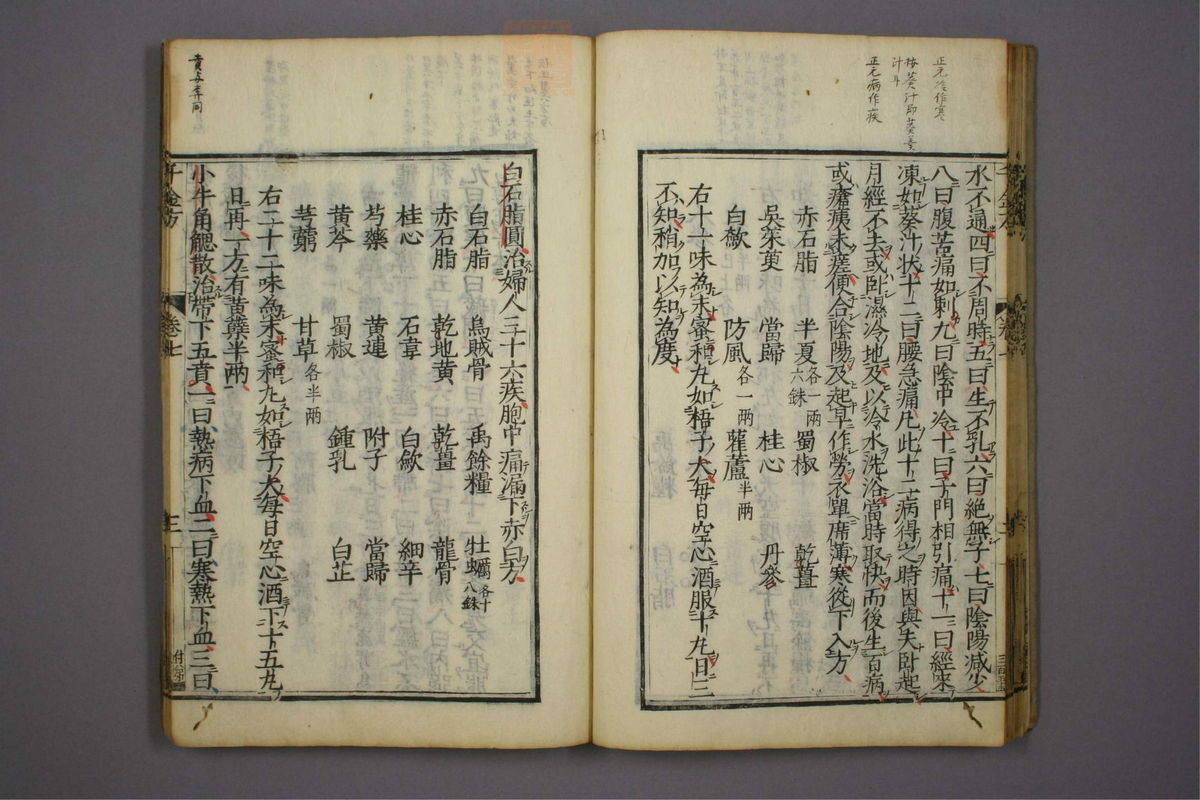 正元冷作寒
按葵汁即葵羹
汁耳
正元病作疾
水不通四曰不周時五曰生不乳六曰絶無子七曰陰陽減少
八曰腹苦痛如刺九曰陰中冷十曰子門相引痛十一曰經來
凍如葵汁状十二曰腰急痛凡此十二病得之時因與夫卧起
月經不去或卧濕冷地及以冷水洗浴當時取快而後生百病
或瘡痍未瘥便合陰陽及起早作勞衣單席薄寒從下入方
赤石脂 半夏各一兩六銖 蜀椒 乾薑
吳茱萸 當歸 桂心 丹參
白歛 防風各一兩 雚蘆半兩
右十一味為末蜜和丸如梧子大每日空心酒服十丸日三
不知稍加以知為度
白石脂圓治婦人三十六疾胞中痛漏下赤白方
白石脂 烏賊骨 禹餘糧 牡蠣各十八銖
赤石脂 乾地黃 乾薑 龍骨
桂心 石韋 白歛 細辛
芍藥 黃連 附子 當歸
黃芩 蜀椒 鍾乳 白芷
芎藭 甘草各半兩
右二十二味為末蜜和丸如梧子大每日空心酒下十五丸
日再一方有黃蘗半兩
小牛角䚡散治帶下五賁一曰熱病下血二曰寒熱下血三曰
賁与奔同
千金方
卷七
三